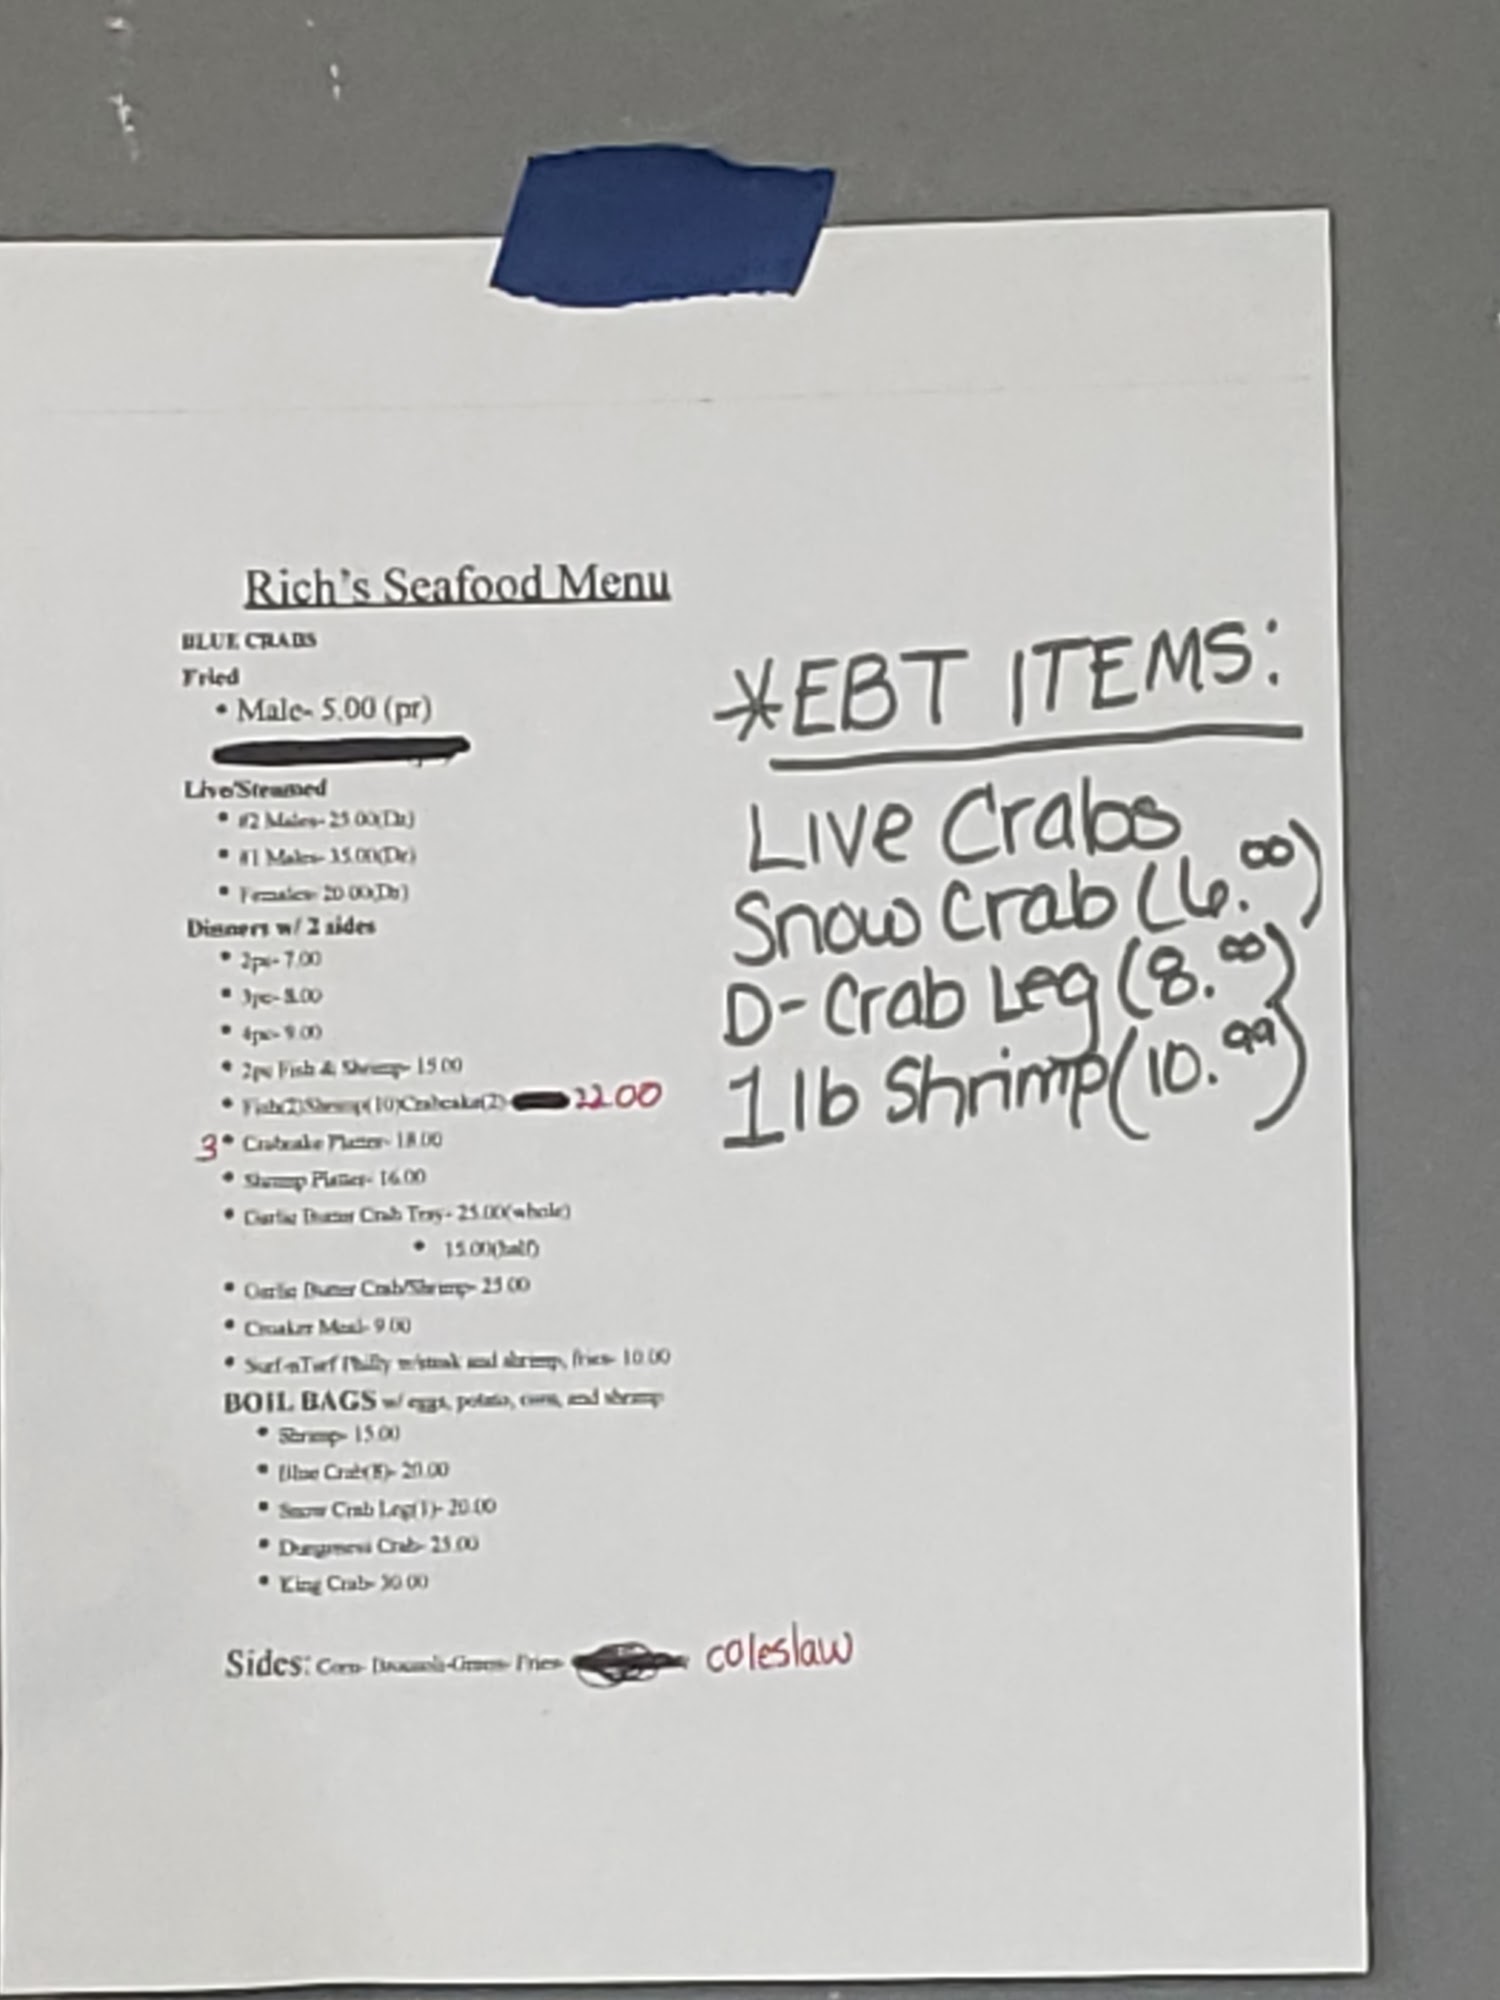 Rich's Seafood Menu
BLUE CRABS
Fried
• Male- 5.00 (pr)
Live/Steamed
• #2 Males- 25.00(Dz)
• #1 Males- 35.00(Dz)
• Females- 20.00(Dz)
Dinners w/ 2 sides
• 2pc- 7.00
• 3pc- 8.00
• 4pc- 9.00
• 2pc Fish & Shrimp- 15.00
• Fish(2)Shrimp(10)Crabcake(2)- 22.00
3 • Crabcake Platter- 18.00
• Shrimp Platter- 16.00
• Garlic Butter Crab Tray- 25.00(whole)
• 15.00(half)
• Garlic Butter Crab/Shrimp- 25.00
• Croaker Meal- 9.00
• Surf-nTurf Philly w/steak and shrimp, fries- 10.00
BOIL BAGS w/ eggs, potato, corn, and shrimp
• Shrimp- 15.00
• Blue Crab(8)- 20.00
• Snow Crab Leg(1)- 20.00
• Dungeness Crab- 25.00
• King Crab- 30.00
Sides: Corn- Broccoli-Greens- Fries- coleslaw
*EBT ITEMS:
Live Crabs
Snow Crab (6.00)
D-Crab Leg (8.00)
1 lb Shrimp (10.99)